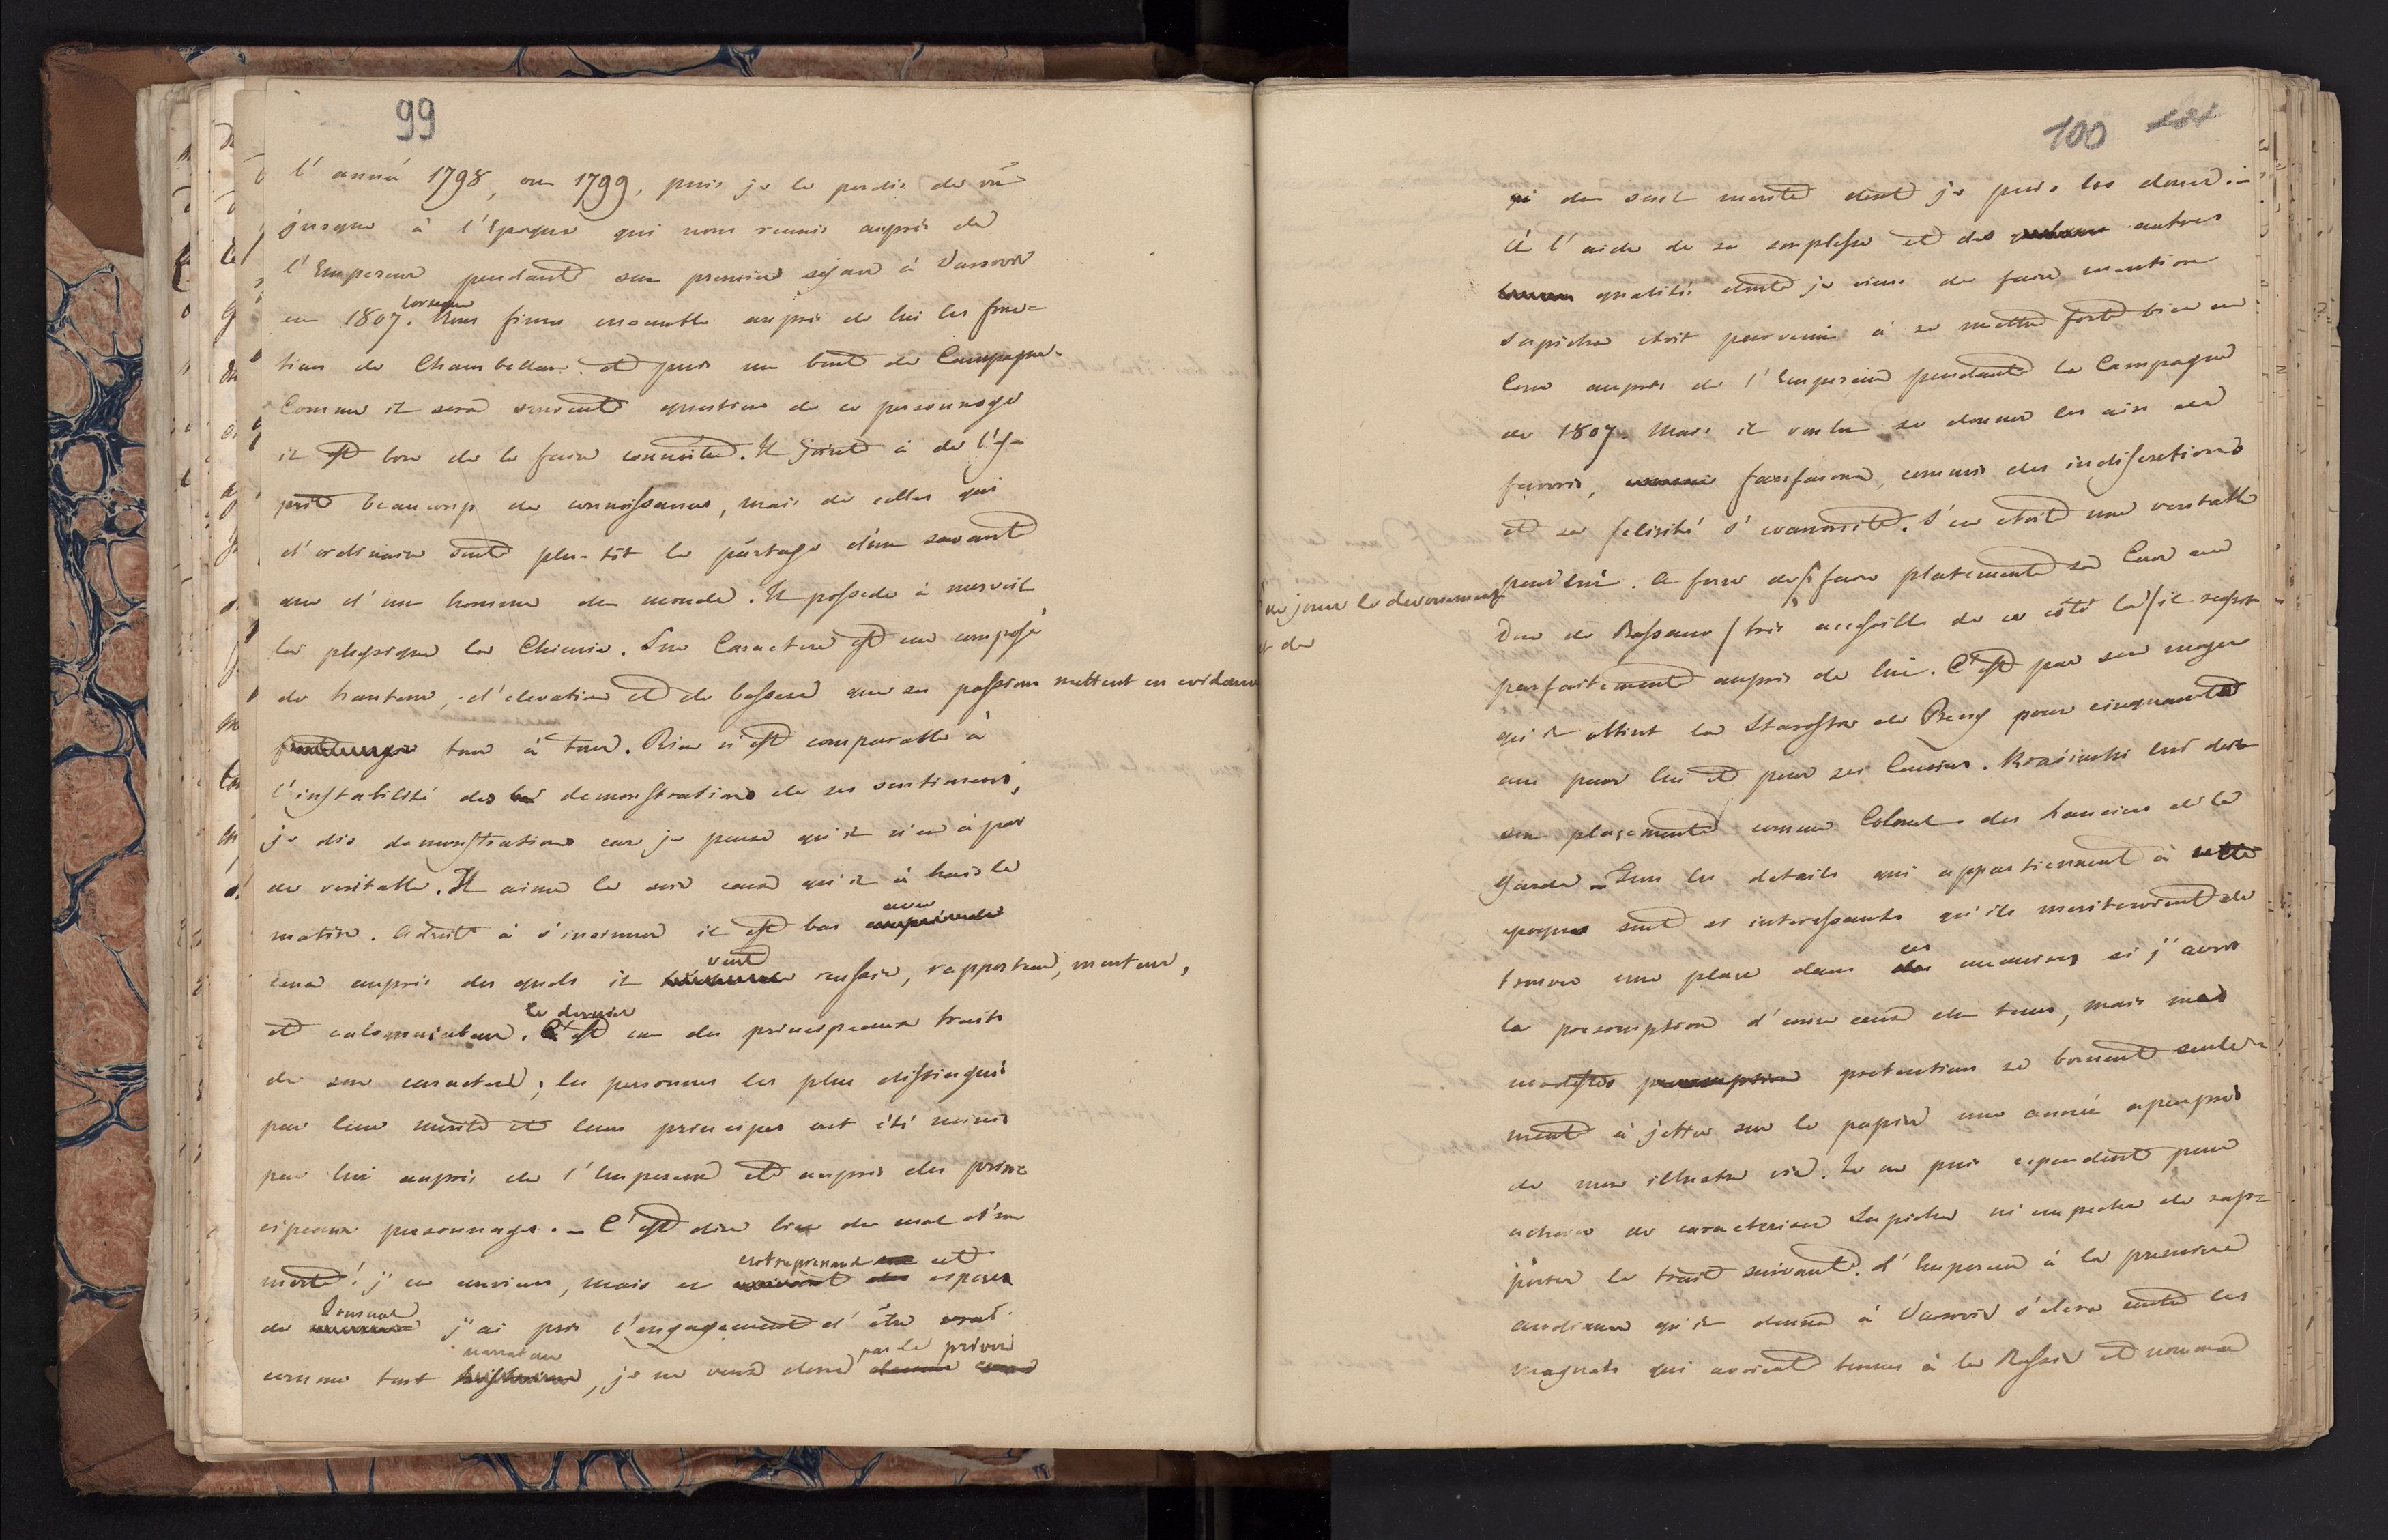 99
l'anné 1798, ou 1799, puis je le perdis de vue
jusque à l'Epoque qui nous reunis aupris de
l'Empereur pendant son premier sejour à Varsovie
en 1807. lorsque Nous fimes ensemble aupris de lui les fonc=
tions de Chambellan. et puis un bout de Campagne.
Comme il sera souvent question de ce personnage
il est bon de le faire connoitre. Il joint à de l'es
prit beaucoup de connoissances, mais de celles qui
d'ordinaire sont plu-tôt le partage d'un savant
que d'un homme du monde. Il possede à merveil
la physique la Chimie. Son Caractere est un composé
de hauteur, d'elevation et de bassesse que ses passions mettent en evidance
tour à tour. Rien n'est comparable à
l'instabilité des demonstrations de ses sentimens,
je dis demonstrations car je pense qu'il n'en à pas
de veritable. Il aime le soir ceux qu'il à hais le
matin. Adroit à s'insinuer il est bas avec
ceux aupris des quels il veut reussir, rapporteur, menteur,
et calomniateur. Ce dernier est un des principeaux traits
de son caractere; les personnes les plus distingués
par leur merite et leurs principes ont été noircis
par lui aupris de l'Empereur et aupris des prin=
cipeaux personnages. – C'est dire bien du mal d'un
mort! j'en conviens, mais en entreprenant cet
de j'ai pris l'engagement d'être vrai
comme tout narrateur, je ne veux donc pas le priver
100
du seul merite dont je puis les douer. –
à l'aide de sa souplesse et des autres
qualités dont je viens de faire mention
Sapieha etoit parvenu à se mettre fort bien en
Cour aupris de l'Empereur pendant la Campagne
de 1807. Mais il voulu se donner les airs de
favoris, fanfarona, commis des indiscretions
et sa felicité s'evanouit. S'en etoit une veritable
pour lui. A force de faire platement sa Cour au
de jouer le devouement
et de
Duc de Bassano / tres accessible de ce côté la / il
parfaitement aupris de lui. C'est par son moyen
qu'il obtint la Starostie de pour cinquante
ans pour lui et pour ses Cousins. Krasinski lui doit
son placement comme Colonel des lanciers de la
garde – Tous les details qui appartiennent à cette
epoque sont si interessants qu'ils meriteroient de
trouver une place dans ces memoires si j'avois
la presomption d'ecrire ceux du tems, mais mes
modestes pretentions se bornent seule=
ment à jetter sur le papier une année apeupres
de mon illustre vie. Je ne puis cependent pour
achever de caracteriser Sapieha m'empecher de rap=
porter le trait suivant. L'Empereur à la premiere
audiance qu'il donna à Varsovie s'eleva contre les
magnats qui avoient tenus à la Russie et nomma